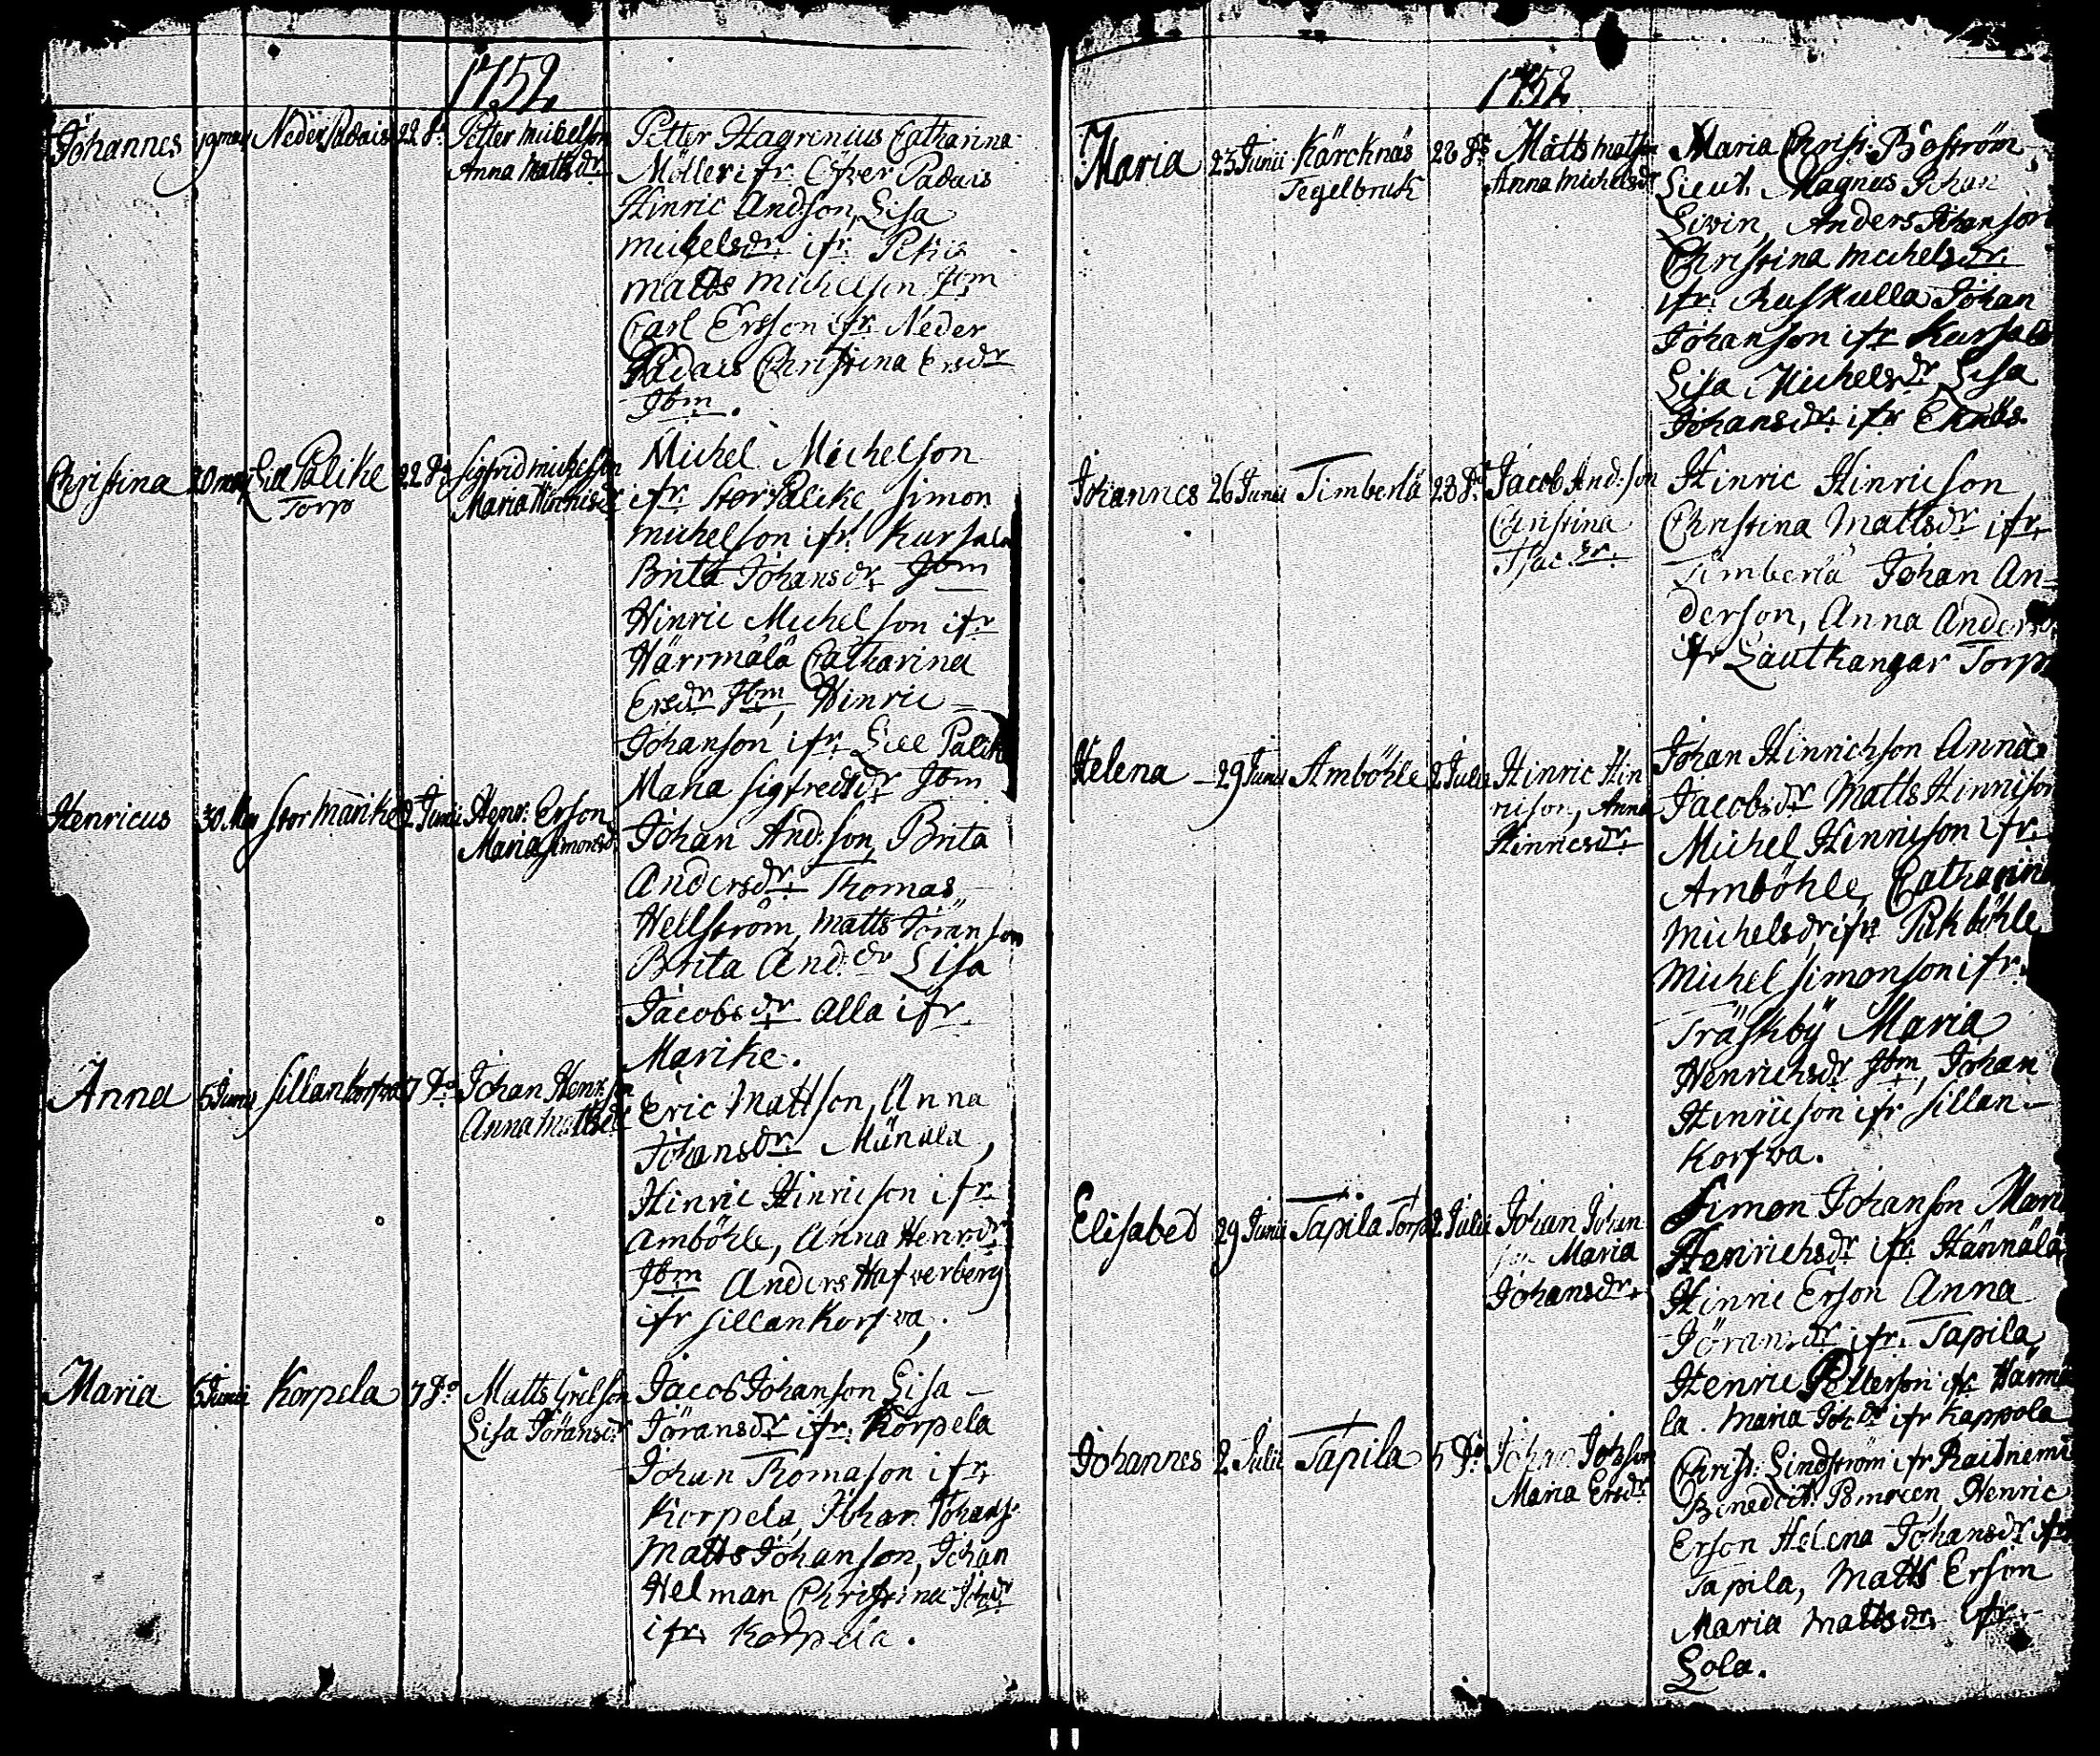 1752
Johannes 19 may Neder Padais 22 do Petter Michelson Petter Hagrenius Catharina
Anna Matts dr Möller ifr. Öfver Padais
Hinric And:son, Lisa
Michelsdr. ifr.
Matts Michelson Jbm
Carl Erson ifr. Neder
Padais Christina Ersdr
Jbm.
Christina 20 may Lill Palike 22 do Sigfrid Michelson Michel Michelson
Torp Maria ifr. Stor Palike, Simon
Michelson ifr. Kursala
Brita Johansdr Jbm
Hinric Michelson ifr
Härrmälä Catharina
Ersdr Jbm, Hinric
Johanson ifr. Lill Palike
Maria Sigfredsdr Jbm
Henricus 30 May Stor Marike 2 Junii Henr: Erson Johan And:son, Brita
Maria Simonsd Andersdr. Thomas
Hellström, Matts Jöranson
Brita And:dr Lisa
Jacobsdr alla ifr
Marike.
Anna 5 Junii Sillankorfva 7 Do Johan Henr:son Eric Mattson, Anna
Anna Mattsdr Johansdr.
Hinric Hinricson ifr.
Amböhle, Anna Henr:dr
Jbm Anders Hafverberg
ifr Sillankorfva.
Maria 6 Junii Korpela 7 Do Matts Grelson Jacob Johanson Lisa
Lisa Jöransdr Jöransdr ifr. Korpela
Johan Thomason ifr.
Korpela, Johan Johans:
Matts Johanson, Johan
Helman Christina Joh:dr
ifr. Korpela.
1752
Maria 23 Junii Kärcknäs 28 do Matts Matson Maria Christ: Boström
Tegelbruk Anna Michelsdr Lieut. Magnus Johan
Anders Johanson
Christina Michelsdr.
ifr. Ruskulla Johan
Johanson ifr Kursala
Lisa Michelsdr Lisa
Johansdr. ifr Ehnäs.
Johannes 26 Junii Timberlä 28 do Jacob And:son Hinric Hinricson
Christina Christina Mattsdr ifr.
Isac:dr. Timberlä Johan An-
derson, Anna Anders
ifr Lautkangar Torp
Helena 29 Junii Amböhle 2 Julii Hinric Hin Johan Hinrichson Anna
ricson, Anna Jacobsdr Matts Hinricson
Hinricsdr. Michel Hinricson ifr.
Amböhle, Catharina
Michelsdr ifr. Pikböhle
Michel Simonson ifr.
Träskby Maria
Henrichsdr Jbm, Johan
Hinricson ifr Sillan-
korfva.
Elisabed 29 Junii Tapila Torp 2 Julii Johan Johan Simon Johanson Maria
son Maria Henrichsdr ifr. Hännälä
Johansdr. Hinric Erson Anna
Jöransdr ifr. Tapila,
Henric Petterson ifr Härmä
la. Maria Joh:dr ifr Kappola
Johannes 2 Julii Tapila 5 Do Johan Johson Christ: Lindström ifr Raitniemi
Maria Ersdr. Henric
Erson Helena Johansdr ifr
Tapila, Matts Erson
Maria Mattsdr. ifr.
Lola.